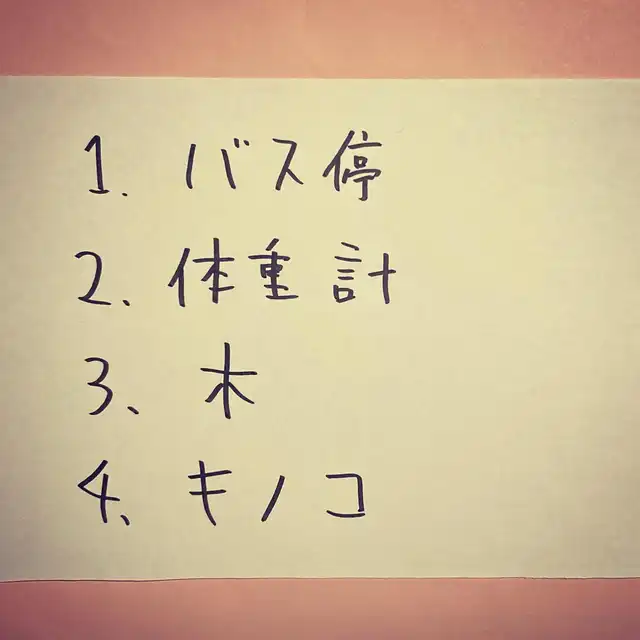 1. バス停
2、体重計
3、木
4、キノコ